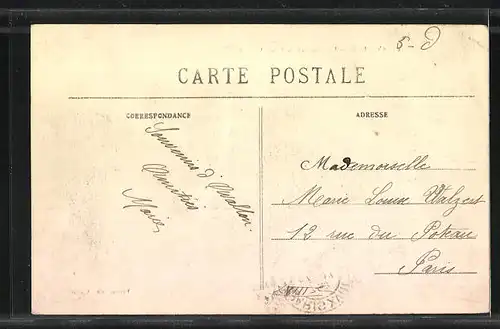 5-d
CARTE POSTALE
CORRESPONDANCE
ADRESSE
Souvenirs d'Avallon.
Amitiés
Marie
Mademoiselle
Marie Louise Walzert
12 rue du Poteau
Paris